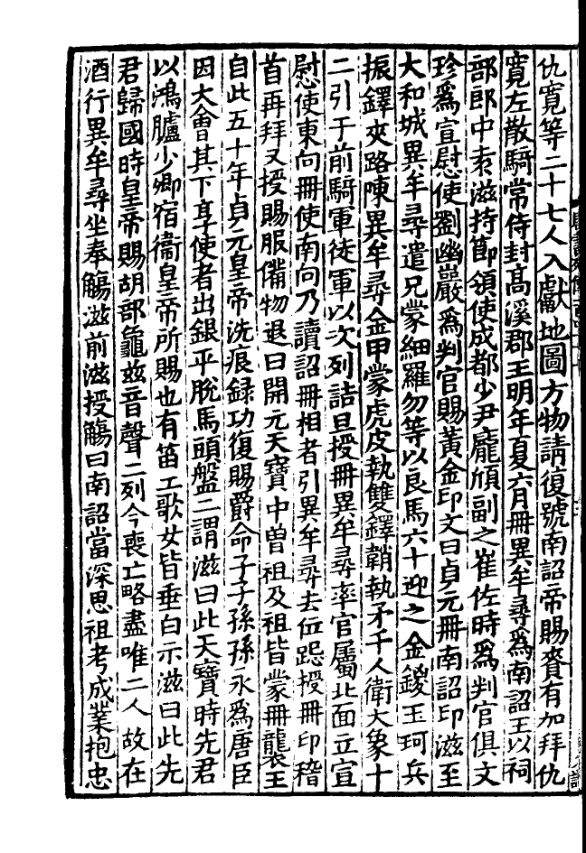 仇寛等二十七人入獻地圖方物請復號南詔帝賜賚有加拜仇
寛左散騎常侍封髙溪郡王明年夏六月冊異牟尋爲南詔王以祠
部郎中袁滋持節領使成都少尹龐頎副之崔佐時爲判官俱文
珍爲宣慰使劉幽巖爲判官賜黃金印文曰貞元冊南詔印滋至
大和城異牟尋遣兄蒙細羅勿等以良馬六十迎之金鍐玉珂兵
振鐸夾路陳異牟尋金甲蒙虎皮執雙鐸鞘執矛千人衛大象十
二引于前騎軍徒軍以次列詰旦授冊異牟尋率官屬北面立宣
慰使東向冊使南向乃讀詔冊相者引異牟尋去位跽授冊印稽
首再拜又授賜服備物退曰開元天寶中曽祖及祖皆蒙冊襲王
自此五十年貞元皇帝洗痕録功復賜爵命子子孫孫永爲唐臣
因大會其下享使者出銀平脫馬頭盤二謂滋曰此天寶時先君
以鴻臚少卿宿衞皇帝所賜也有笛工歌女皆垂白示滋曰此先
君歸國時皇帝賜胡部龜茲音聲二列今喪亡略盡唯二人故在
酒行異牟尋坐奉觴滋前滋授觴曰南詔當深思祖考成業抱忠